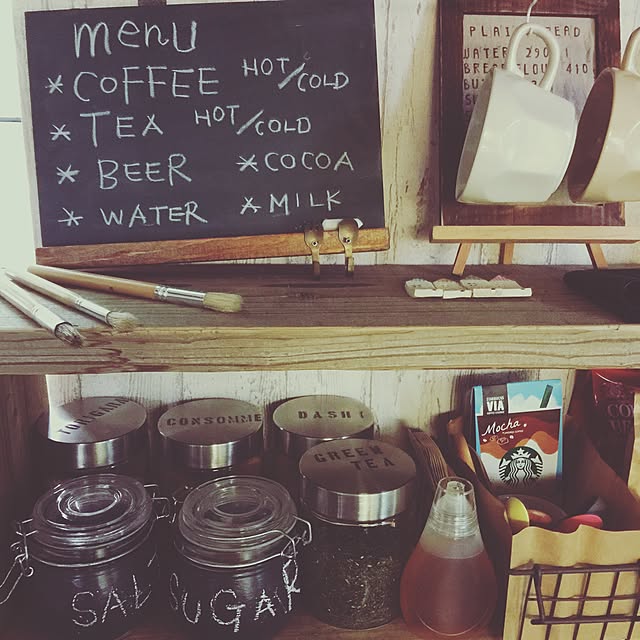 menu
* COFFEE HOT/COLD
* TEA HOT/COLD
* BEER * COCOA
* WATER * MILK
WATER 290
410
TORIGARA
CONSOMME
DASHI
GREEN TEA
STARBUCKS
VIA
Mocha
SAL
SUGAR